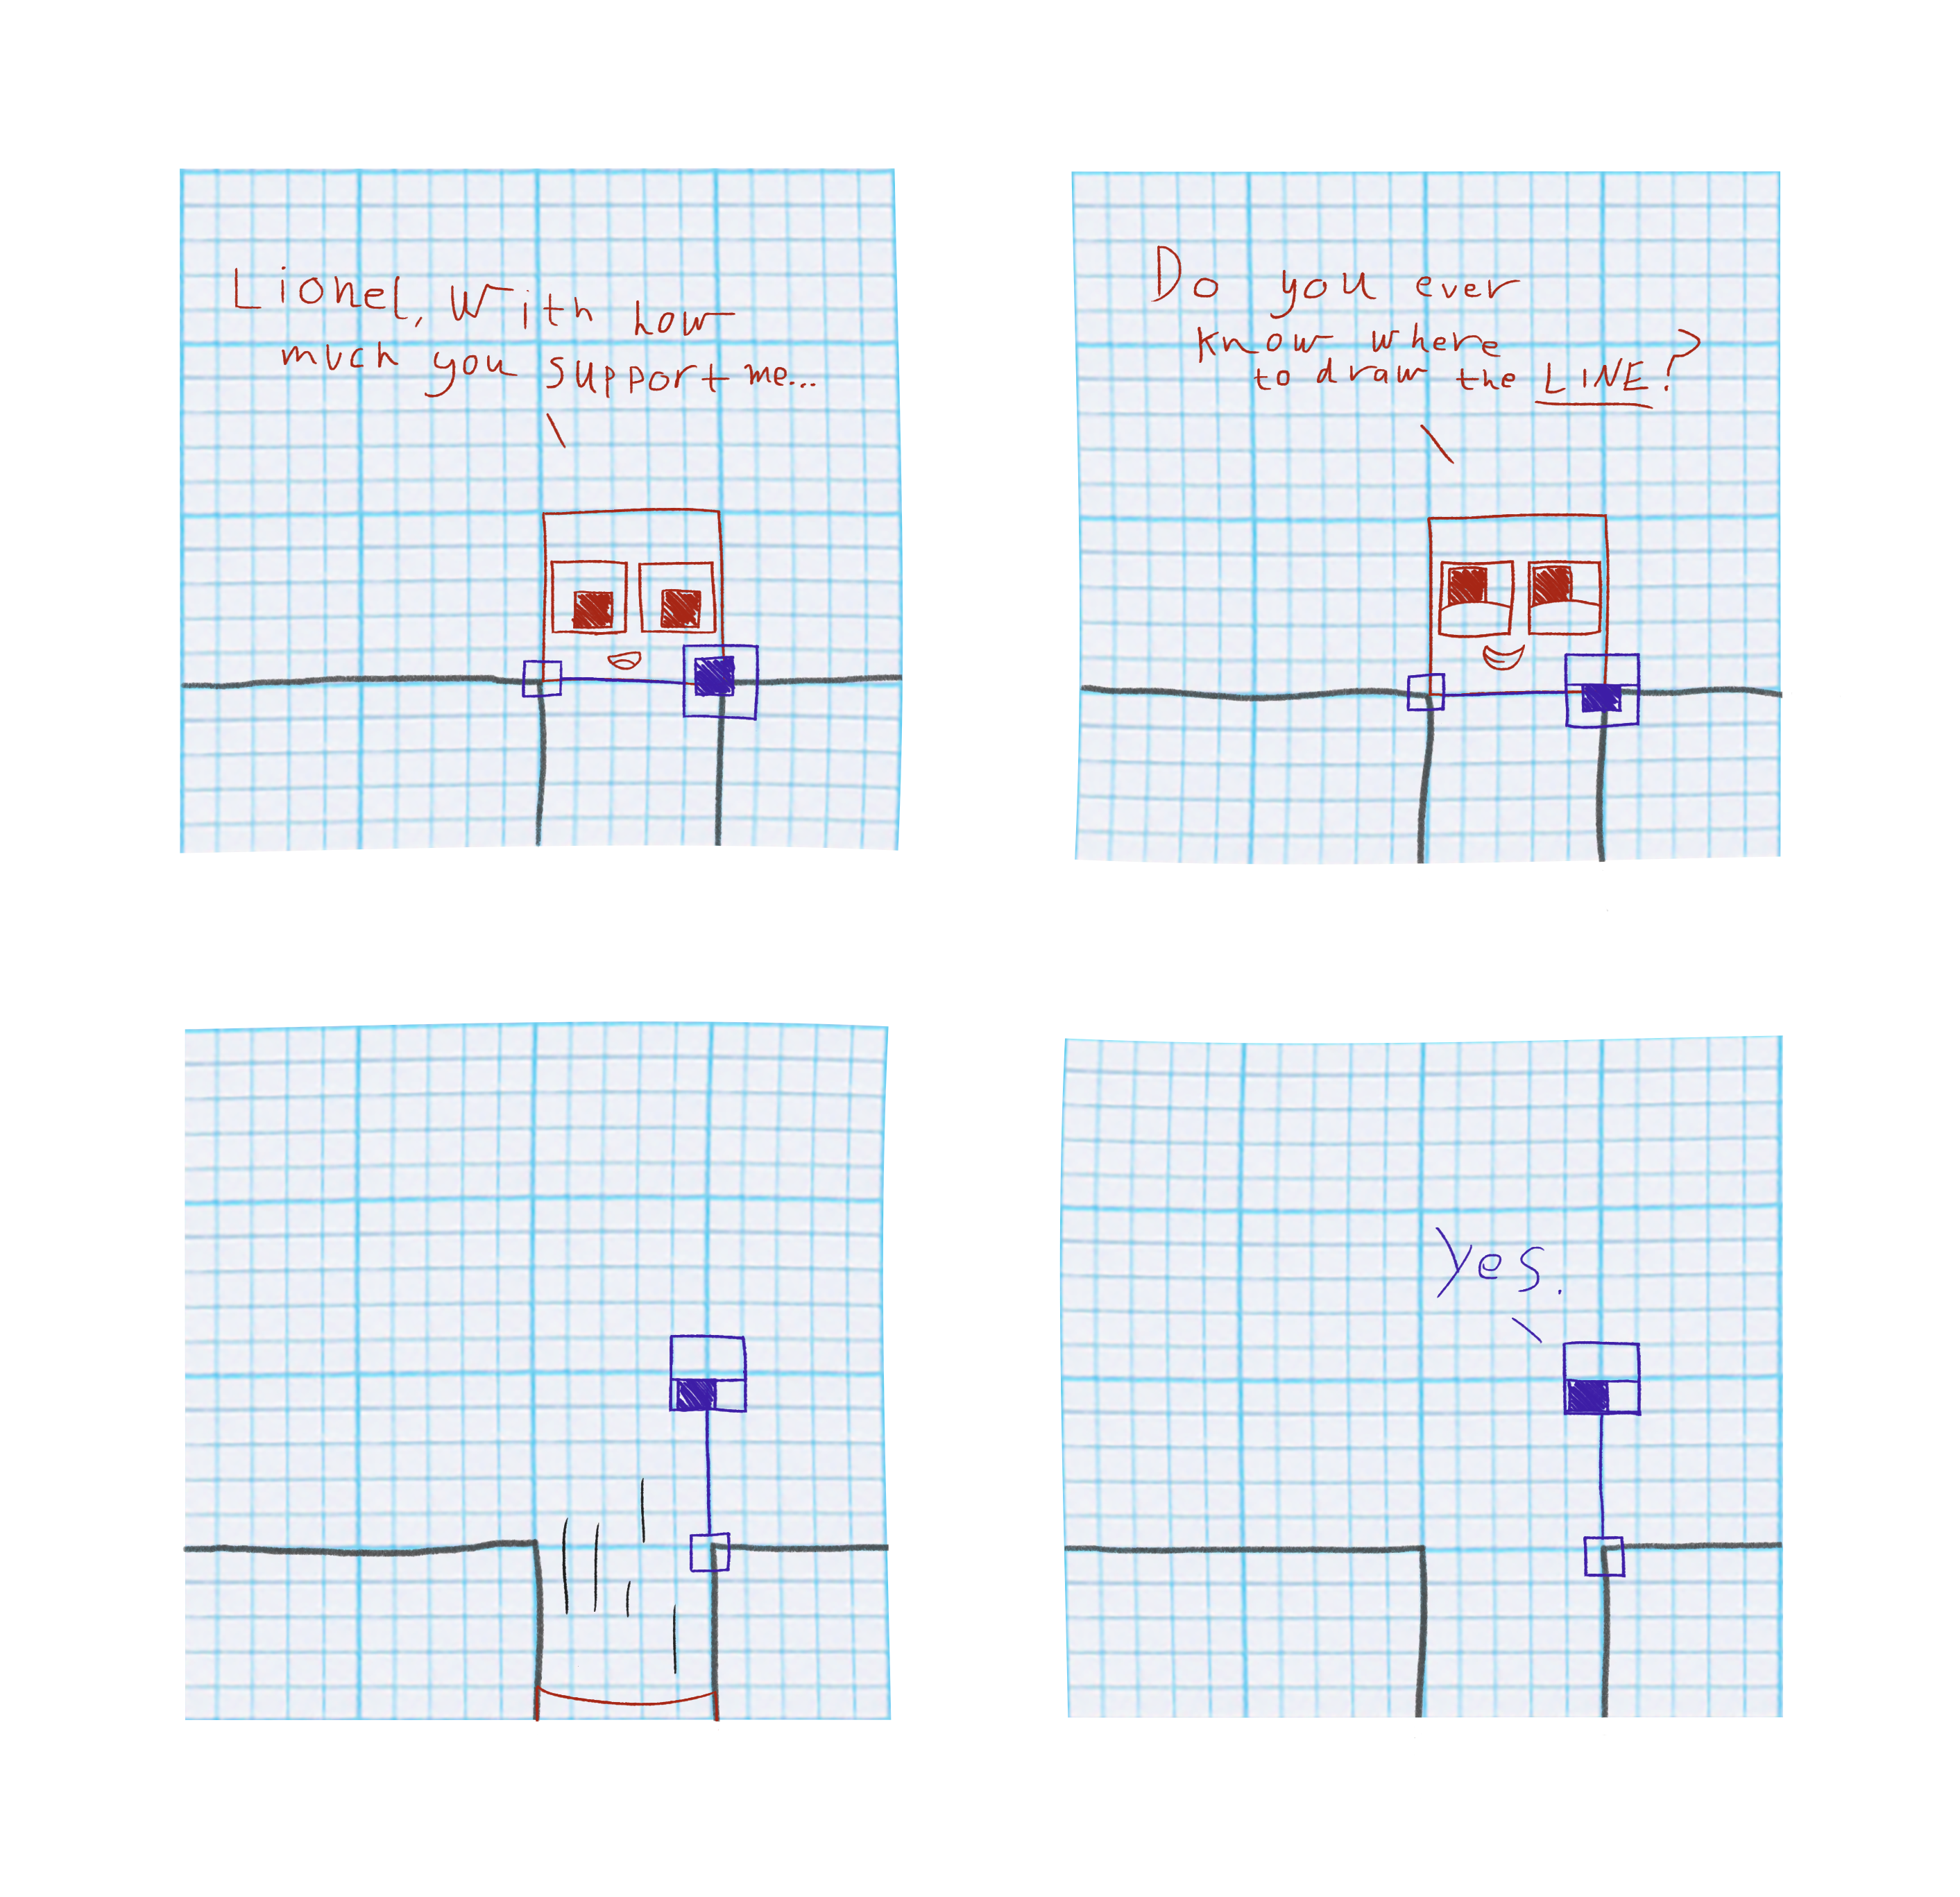 Lionel, With how
much you support me...
Do you ever
know where
to draw the LINE?
Yes.